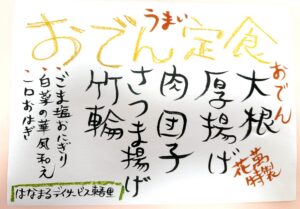 うまい
おでん定食
おでん
大根
厚揚げ
肉団子
さつま揚げ
竹輪
花畑特製
・ごま塩おにぎり
・白菜の華風和え
・一口おはぎ
はなまるデイサービス